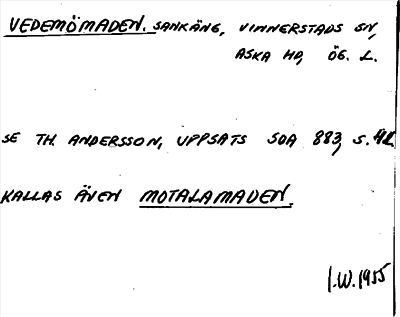 VEDEMÖMADEN. SANKÄNG, VINNERSTADS SN,
ASKA HD, ÖG. L.
SE TH. ANDERSSON, UPPSATS SOA 883, S.
KALLAS ÄVEN MOTALAMADEN.
I.W. 1955